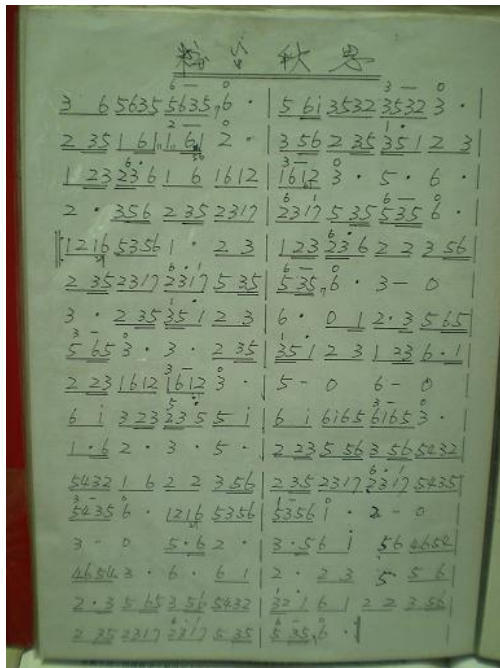 粉台秋思
3 6 5635 5635 6 · | 5 6i 3532 3532 3 · |
2 35 1 61 1 61 2 · | 3 56 2 35 35 1 2 3
1 23 23 6 1 6 1612 | 1612 3 · 5 · 6 ·
2 · 356 2 35 2317 | 2317 5 35 535 6 · |
1216 5356 1 · 2 3 | 1 23 23 6 2 2 3 56 |
2 35 2317 2317 5 35 | 5 35 6 · 3 — 0 |
3 · 2 35 35 1 2 3 | 6 · 0 1 2·3 5 65 |
5 65 3 · 3 · 2 35 | 35 1 2 3 1 23 6·1 |
2 23 1612 1612 3 · | 5 — 0 6 — 0 |
6 i 3 23 23 5 5 i | 6 i 6165 6165 3 · |
1·6 2 · 3 · 5 · | 2 23 5 56 3 56 5432 |
5432 1 6 2 2 3 56 | 2 35 2317 2317 5435 |
5435 6 · 1216 5356 | 5356 1 · 2 — 0 |
3 — 0 5·6 2 · | 3·5 6 i 56 4654 |
4654 3 · 6 · 6 1 | 2 · 2 3 5 · 5 6 |
2·3 5 65 3 56 5432 | 32 1 6 1 2 2 3 56 |
2 35 2317 2317 5 35 | 5 35 6 · |